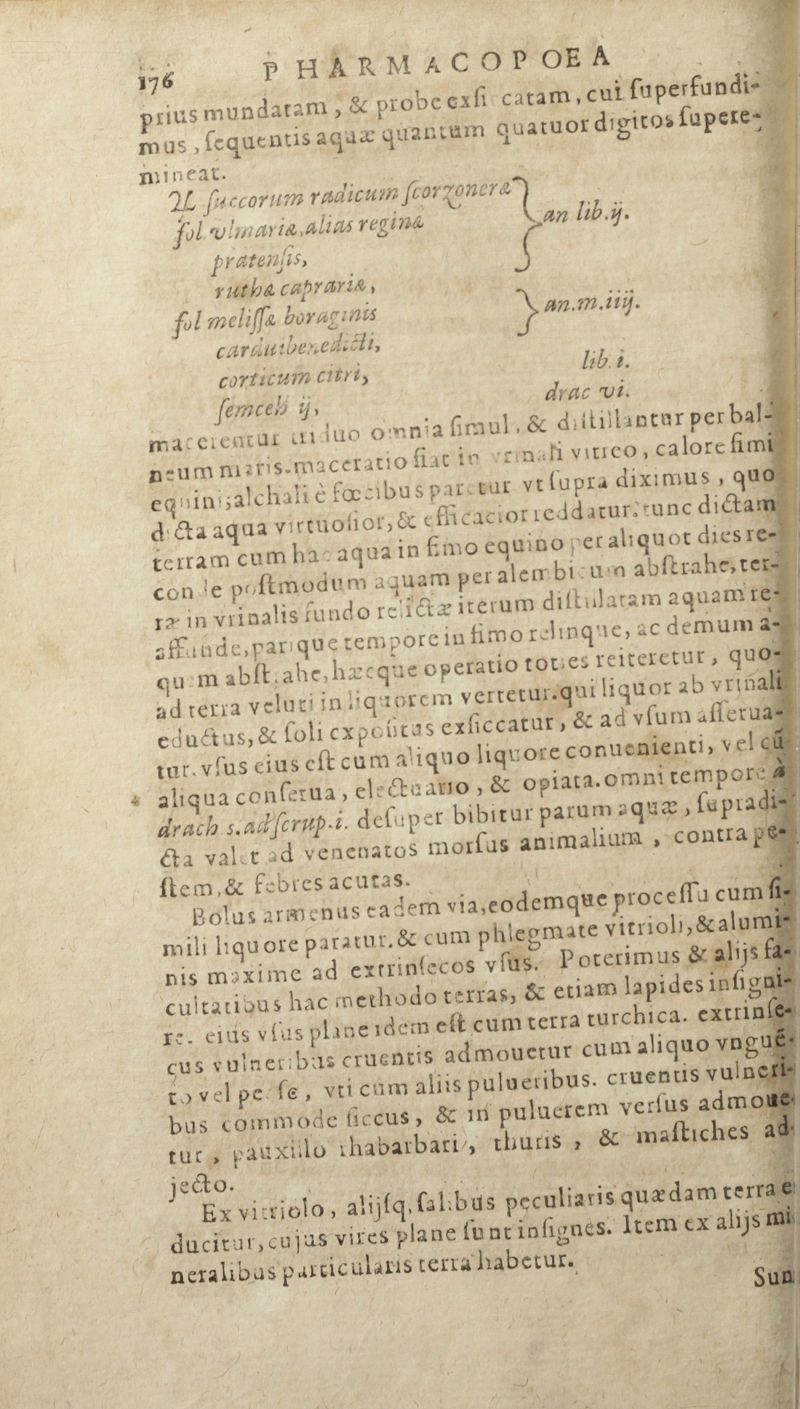 176 PHARMACOPOEA
prius mundatam, & probe exſi catam, cui ſuperfundi-
mus, ſequentis aquæ quantum quatuor digitos ſupere-
mineat.
℞ ſuccorum radicum ſcorzoneræ
fol. vlmariæ, alias reginæ
pratenſis,
} an lib.ij.
ruthæ caprariæ,
fol meliſſæ boraginis
cardui benedicti,
} an.m.iiij.
corticum citri, lib. i.
ſem ij, drac vi.
omnia ſimul, & diſtillantur per bal-
neum maris. maceratio fiat in vrinali vitreo, calore fimi
equini; alchali è fœcibus paratur vt ſupra diximus, quo
dicta aqua virtuoſior, & efficacior reddatur: tunc dictam
terram cum hac aqua in fimo equino per aliquot dies re-
conde poſtmodum aquam per alembicum abſtrahe, ter-
ræ in vrinalis fundo relictæ iterum diſtillatam aquam re-
affunde, parique tempore in fimo relinque, ac demum a-
quam abſtrahe, hæcque operatio toties reiteretur, quo-
ad terra veluti in liquorem vertetur. qui liquor ab vrinali
eductus, & ſoli expoſitus exſiccatur, & ad vſum aſſerua-
tur. vſus eius eſt cum aliquo liquore conuenienti, vel cū
aliqua conſerua, electuario, & opiata. omni tempore à
drach s. ad ſcrup. i. deſuper bibitur parum aquæ, ſupradi-
cta valet ad venenatos morſus animalium, contra pe-
ſtem, & febres acutas.
Bolus armenus eadem via, eodemque proceſſu cum ſi-
mili liquore paratur. & cum phlegmate vitrioli, & alumi-
nis maxime ad extrinſecos vſus. Poterimus & alijs fa-
cultatibus hac methodo terras, & etiam lapides inſigni-
re. eius vſus plane idem eſt cum terra turchica. extrinſe-
cus vulneribus cruentis admouetur cum aliquo vngué-
to vel per ſe, vti cum aliis pulueribus. cruentis vulneri-
bus commode ſiccus, & in puluerem verſus admoue-
tur, pauxillo rhabarbari, thuris, & maſtiches ad-
jecto.
Ex vitriolo, alijſq. ſalibus peculiaris quædam terra e-
ducitur, cujus vires plane ſunt inſignes. Item ex alijs mi
neralibus particularis terra habetur.
Sun